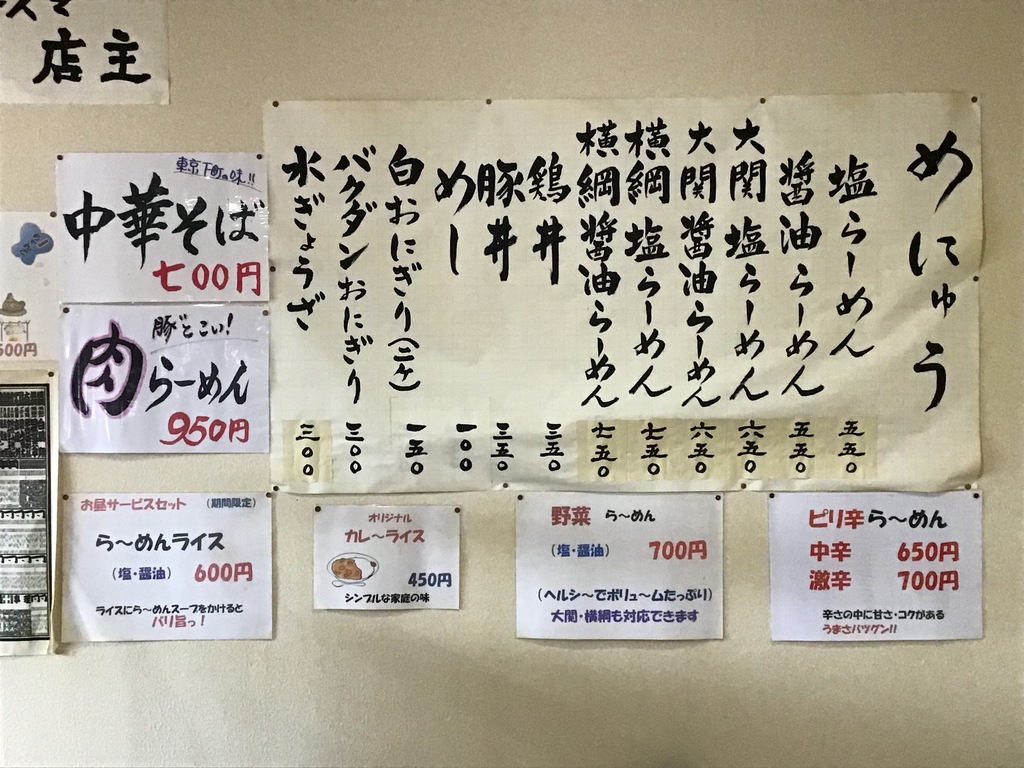 店主
めにゅう
塩らーめん 五五〇
醤油らーめん 五五〇
大関塩らーめん 六五〇
大関醤油らーめん 六五〇
横綱塩らーめん 七五〇
横綱醤油らーめん 七五〇
鶏丼 三五〇
豚丼 三五〇
めし 一〇〇
白おにぎり(二ヶ) 一五〇
バクダンおにぎり 三〇〇
水ぎょうざ 三〇〇
東京下町の味!!
中華そば
七00円
豚こい!
肉らーめん
950円
500円
お昼サービスセット (期間限定)
ら〜めんライス
(塩・醤油) 600円
ライスにら〜めんスープをかけると
バリ旨っ!
オリジナル
カレ〜ライス
450円
シンプルな家庭の味
野菜 ら〜めん
(塩・醤油) 700円
(ヘルシ〜でボリュ〜ムたっぷり)
大関・横綱も対応できます
ピリ辛ら〜めん
中辛 650円
激辛 700円
辛さの中に甘さ・コクがある
うまさバツグン!!